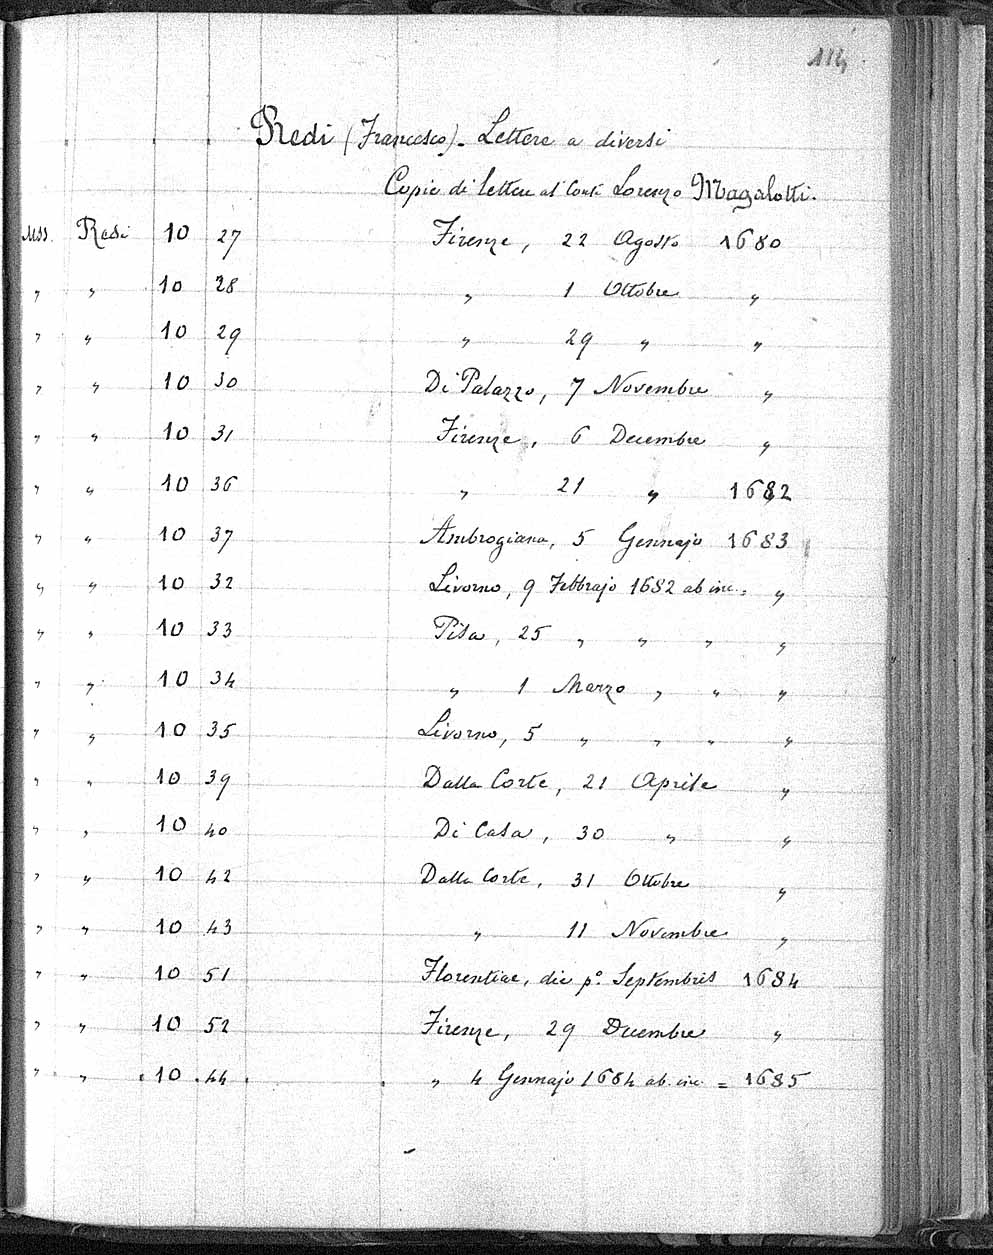 114
Redi (Francesco). Lettere a diversi
Copie di lettere al Conte Lorenzo Magalotti.
Mss. Redi 10 27 Firenze, 22 Agosto 1680
" " 10 28 " 1 Ottobre "
" " 10 29 " 29 " "
" " 10 30 Di Palazzo, 7 Novembre "
" " 10 31 Firenze, 6 Decembre "
" " 10 36 " 21 " 1682
" " 10 37 Ambrogiana, 5 Gennajo 1683
" " 10 32 Livorno, 9 Febbrajo 1682 ab inc. = "
" " 10 33 Pisa, 25 " " " "
" " 10 34 " 1 Marzo " " "
" " 10 35 Livorno, 5 " " " "
" " 10 39 Dalla Corte, 21 Aprile "
" " 10 40 Di Casa, 30 " "
" " 10 42 Dalla Corte, 31 Ottobre "
" " 10 43 " 11 Novembre "
" " 10 51 Florentiae, die p.º Septembris 1684
" " 10 52 Firenze, 29 Decembre "
" " 10 44 " 4 Gennajo 1684 ab. inc. = 1685